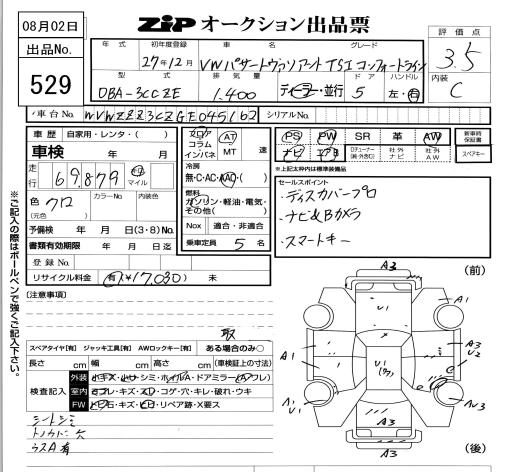 08月02日
ZIP オークション出品票
評価点
3.5
内装
C
出品No.
529
年式 初年度登録 車名 グレード
27年12月 VW パサートヴァリアント TSI コンフォートライン
型式 排気量 ドア ハンドル
DBA-3CCZE 1.400 ディーラー・並行 5 左・右
車台No. WVWZZZ3CZGE045162 シリアルNo.
車歴 自家用・レンタ・( )
車検 年 月
走行 69,879 km マイル
色 クロ (元色) カラーNo. 内装色
予備検 年 月 日(3・8)No.
書類有効期限 年 月 日迄
登録No.
リサイクル料金 有(¥17,030) 未
フロア コラム インパネ AT MT 速
冷房 無・C・AC・AAC・( )
燃料 ガソリン・軽油・電気・その他( )
Nox 適合・非適合
乗車定員 5 名
PS PW SR 革 AW
ナビ エアB
新車時保証書
スペアキー
※上記太枠内は標準装備
セールスポイント
・ディスカバープロ
・ナビ&Bカメラ
・スマートキー
※ご記入の際はボールペンで強くご記入下さい。
[注意事項]
取
スペアタイヤ[有] ジャッキ工具[有] AWロックキー[有] ある場合のみ○
長さ cm 幅 cm 高さ cm (車検証上の寸法)
検査記入
外装 小キズ・小サ・シミ・ホイルA・ドアミラー(A・ワレ)
室内 ヨゴレ・キズ・スレ・コゲ・穴・キレ・破れ・ウキ
FW トビ石・キズ・ヒビ・リペア跡・X要ス
シートシミ
トノカバー欠
ウスA有
(前)
A3
U1
A1
A1
A3
U2
U1
A1
U1
AU3
A3
A3
(後)